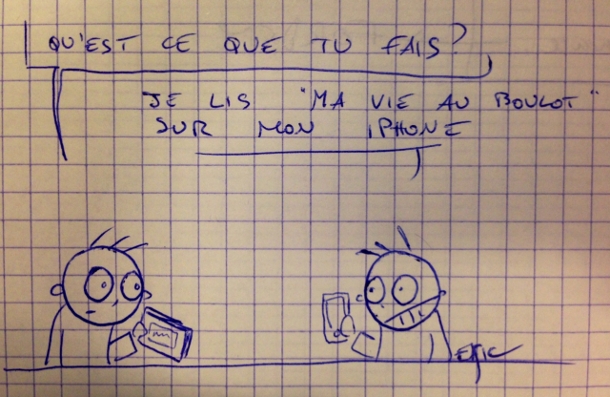 QU'EST CE QUE TU FAIS?
JE LIS "MA VIE AU BOULOT"
SUR MON IPHONE